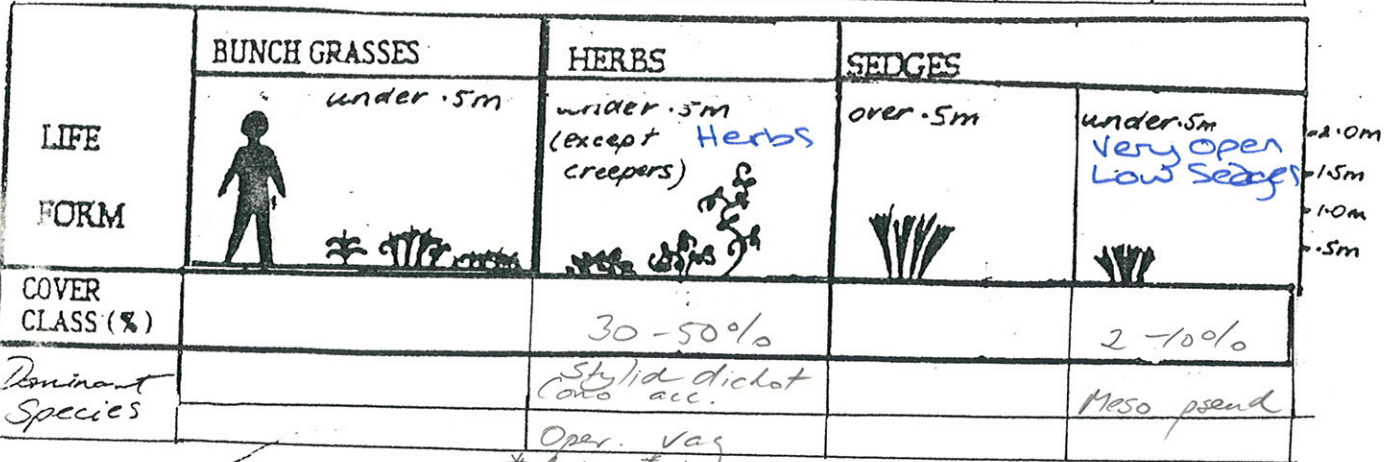 BUNCH GRASSES
HERBS
SEDGES
LIFE
FORM
under .5m
under .5m
(except
creepers)
Herbs
over .5m
under .5m
Very Open
Low Sedges
2.0m
1.5m
1.0m
.5m
COVER
CLASS (%)
30-50%
2-10%
Dominant
Species
Stylid dichot
Cono acc.
Meso pseud
Oper. vag